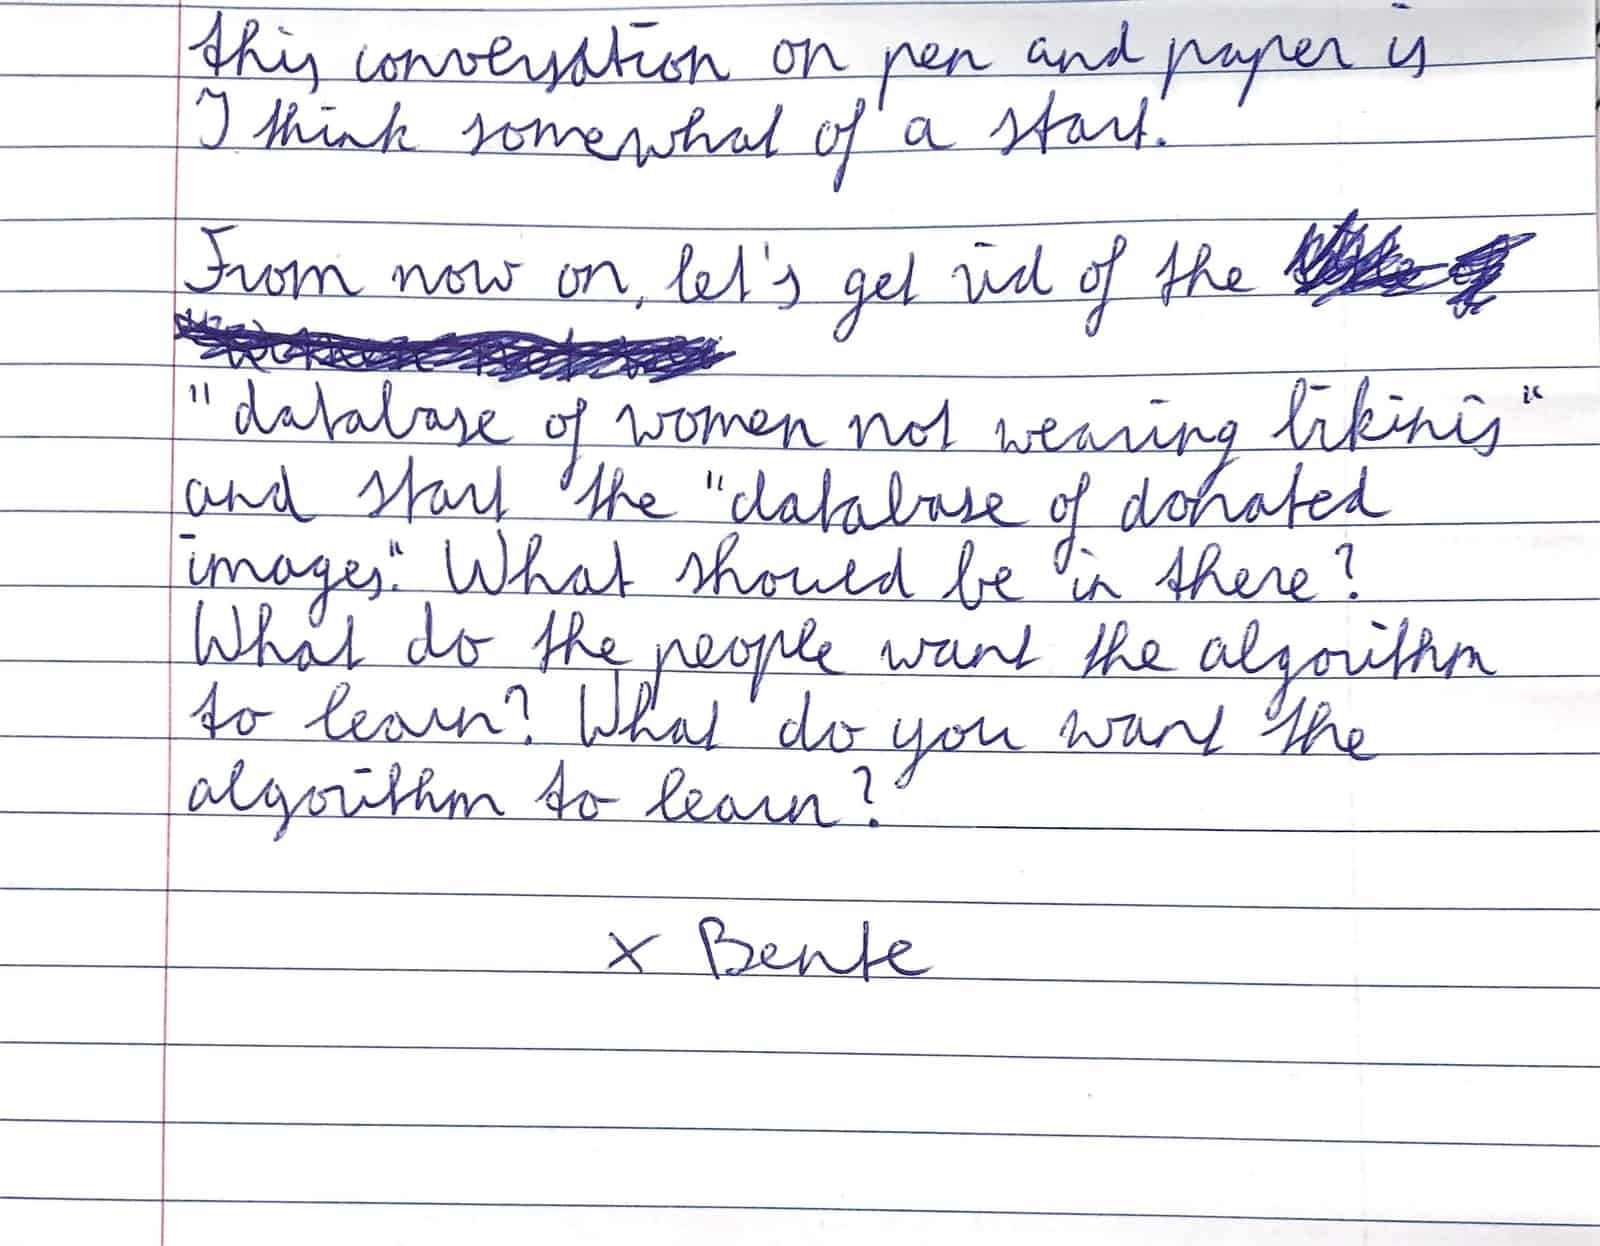 this conversation on pen and paper is
I think somewhat of a start.
From now on, let's get rid of the
"database of women not wearing bikinis"
and start the "database of donated
images". What should be in there?
What do the people want the algorithm
to learn? What do you want the
algorithm to learn?
x Bente